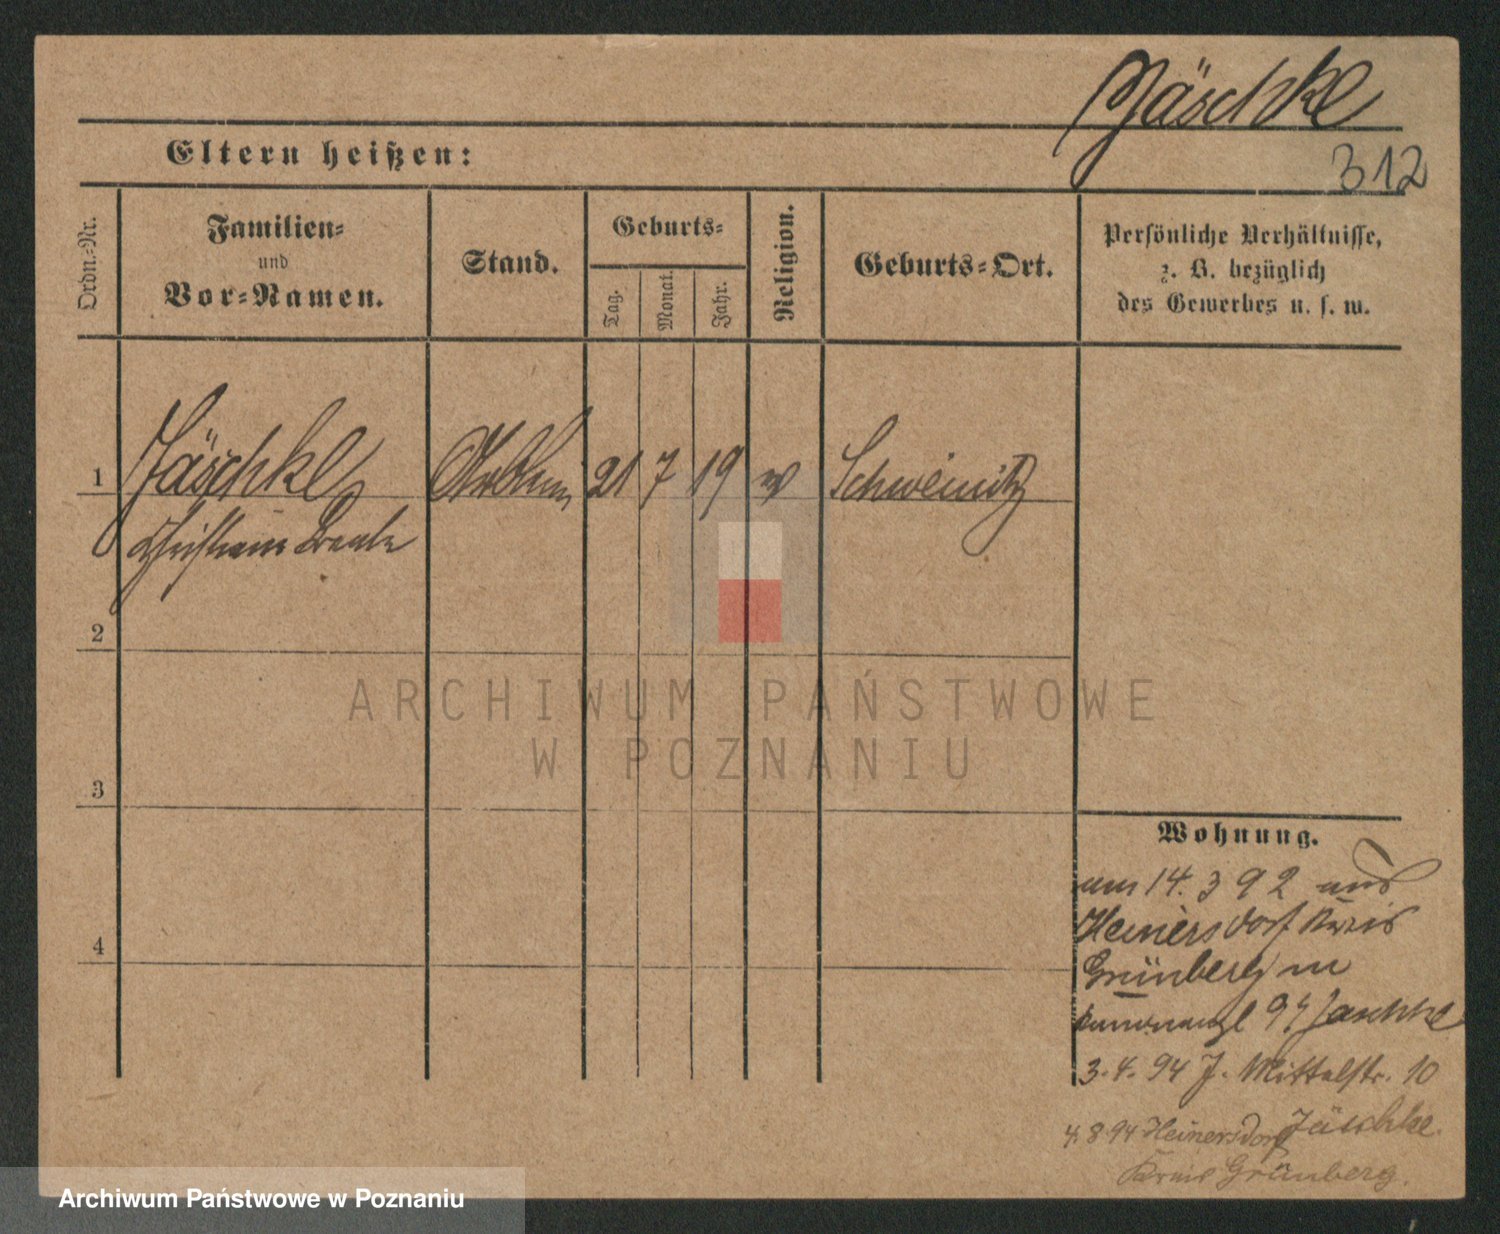 Jäschke
Eltern heißen:
312
Ordn.-Nr.
Familien-
und
Vor-Namen.
Stand.
Geburts-
Tag.
Monat.
Jahr.
Religion.
Geburts-Ort.
Persönliche Verhältnisse,
z. B. bezüglich
des Gewerbes u. s. w.
1 Jäschke 21 7 19 Schweinitz
2
ARCHIWUM PAŃSTWOWE
W POZNANIU
3
Wohnung.
am 14. 3 92 aus
Heinersdorf Kreis
4
Grünberg in
94 Jaschke
3. 4. 94 J. Mittelstr. 10
4. 8 94 Heinersdorf Jäschke.
Kreis Grünberg.
Archiwum Państwowe w Poznaniu